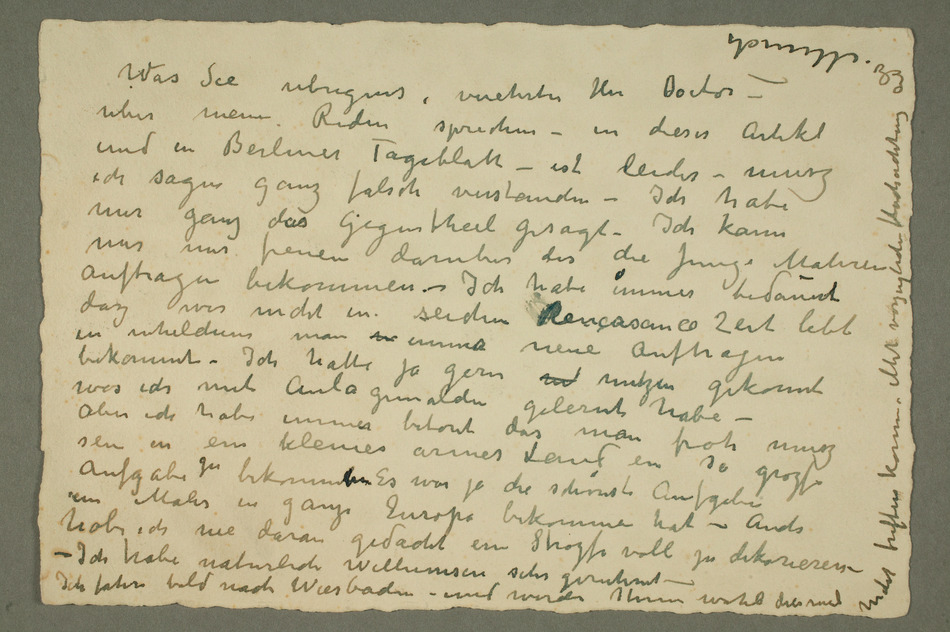 Was Sie ubrigens, verehrter Herr Doctor –
uber meine Reden sprechen – in dieses Artikel
und in Berliner Tageblatt – ist leider – musz
ich sagen ganz falsch verstanden – Ich habe
nur ganz das Gegentheil gesagt – Ich kann
nur mir freuen daruber das die junge Malneren
Auftragen bekommen – Ich habe immer bedauert
dasz wir nicht in solchen Rençasance Zeit lebt
in whelchens man immer neue Auftragen
bekommt – Ich hatte ja gern nutzen gekonnt
was ich mit Aula gemalden gelernt habe –
Aber ich habe immer betont das man froh musz
sein in ein kleines armes Land ein so groszse
Aufgabe zu bekommen Es war ja die schönste Aufgabe
ein Maler in ganze Europa bekommen hat – Auch
habe ich nie daran gedacht ein voll zu dekorieren –
– Ich habe naturlich Willumsen sehr geruhmt –
Ich fahre bald nach Wiesbaden – und werde Ihnen wohl diesmal
nicht treffen konnen. Mit vorzuglicher Hochachtung